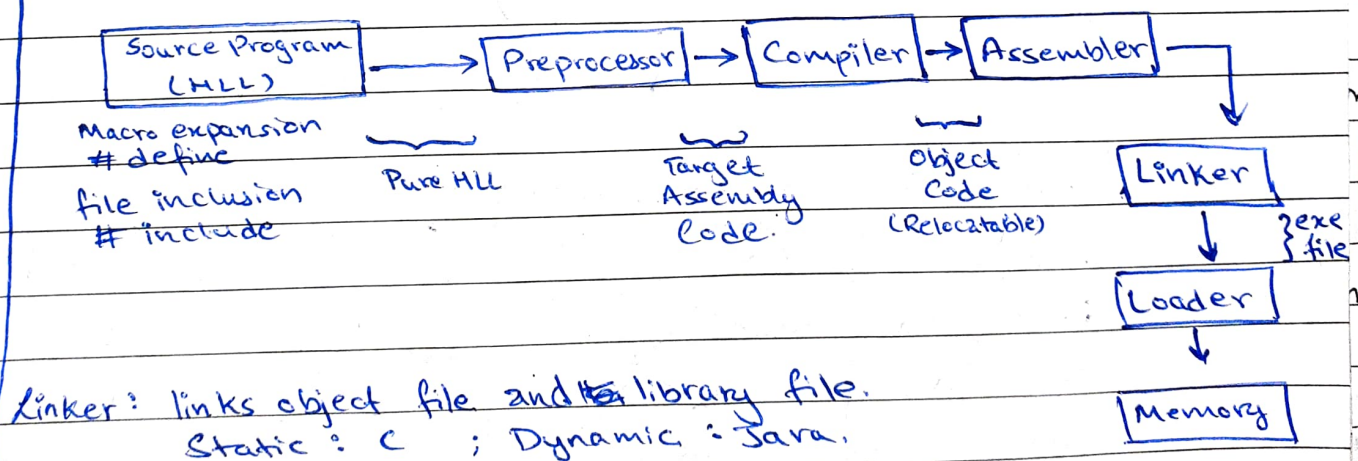 Source Program
(HLL)
Preprocessor
Compiler
Assembler
Macro expansion
# define
file inclusion
# include
Pure HLL
Target
Assembly
Code.
Object
Code
(Relocatable)
Linker
} exe
file
Loader
Memory
Linker: links object file and library file.
Static : C ; Dynamic : Java.